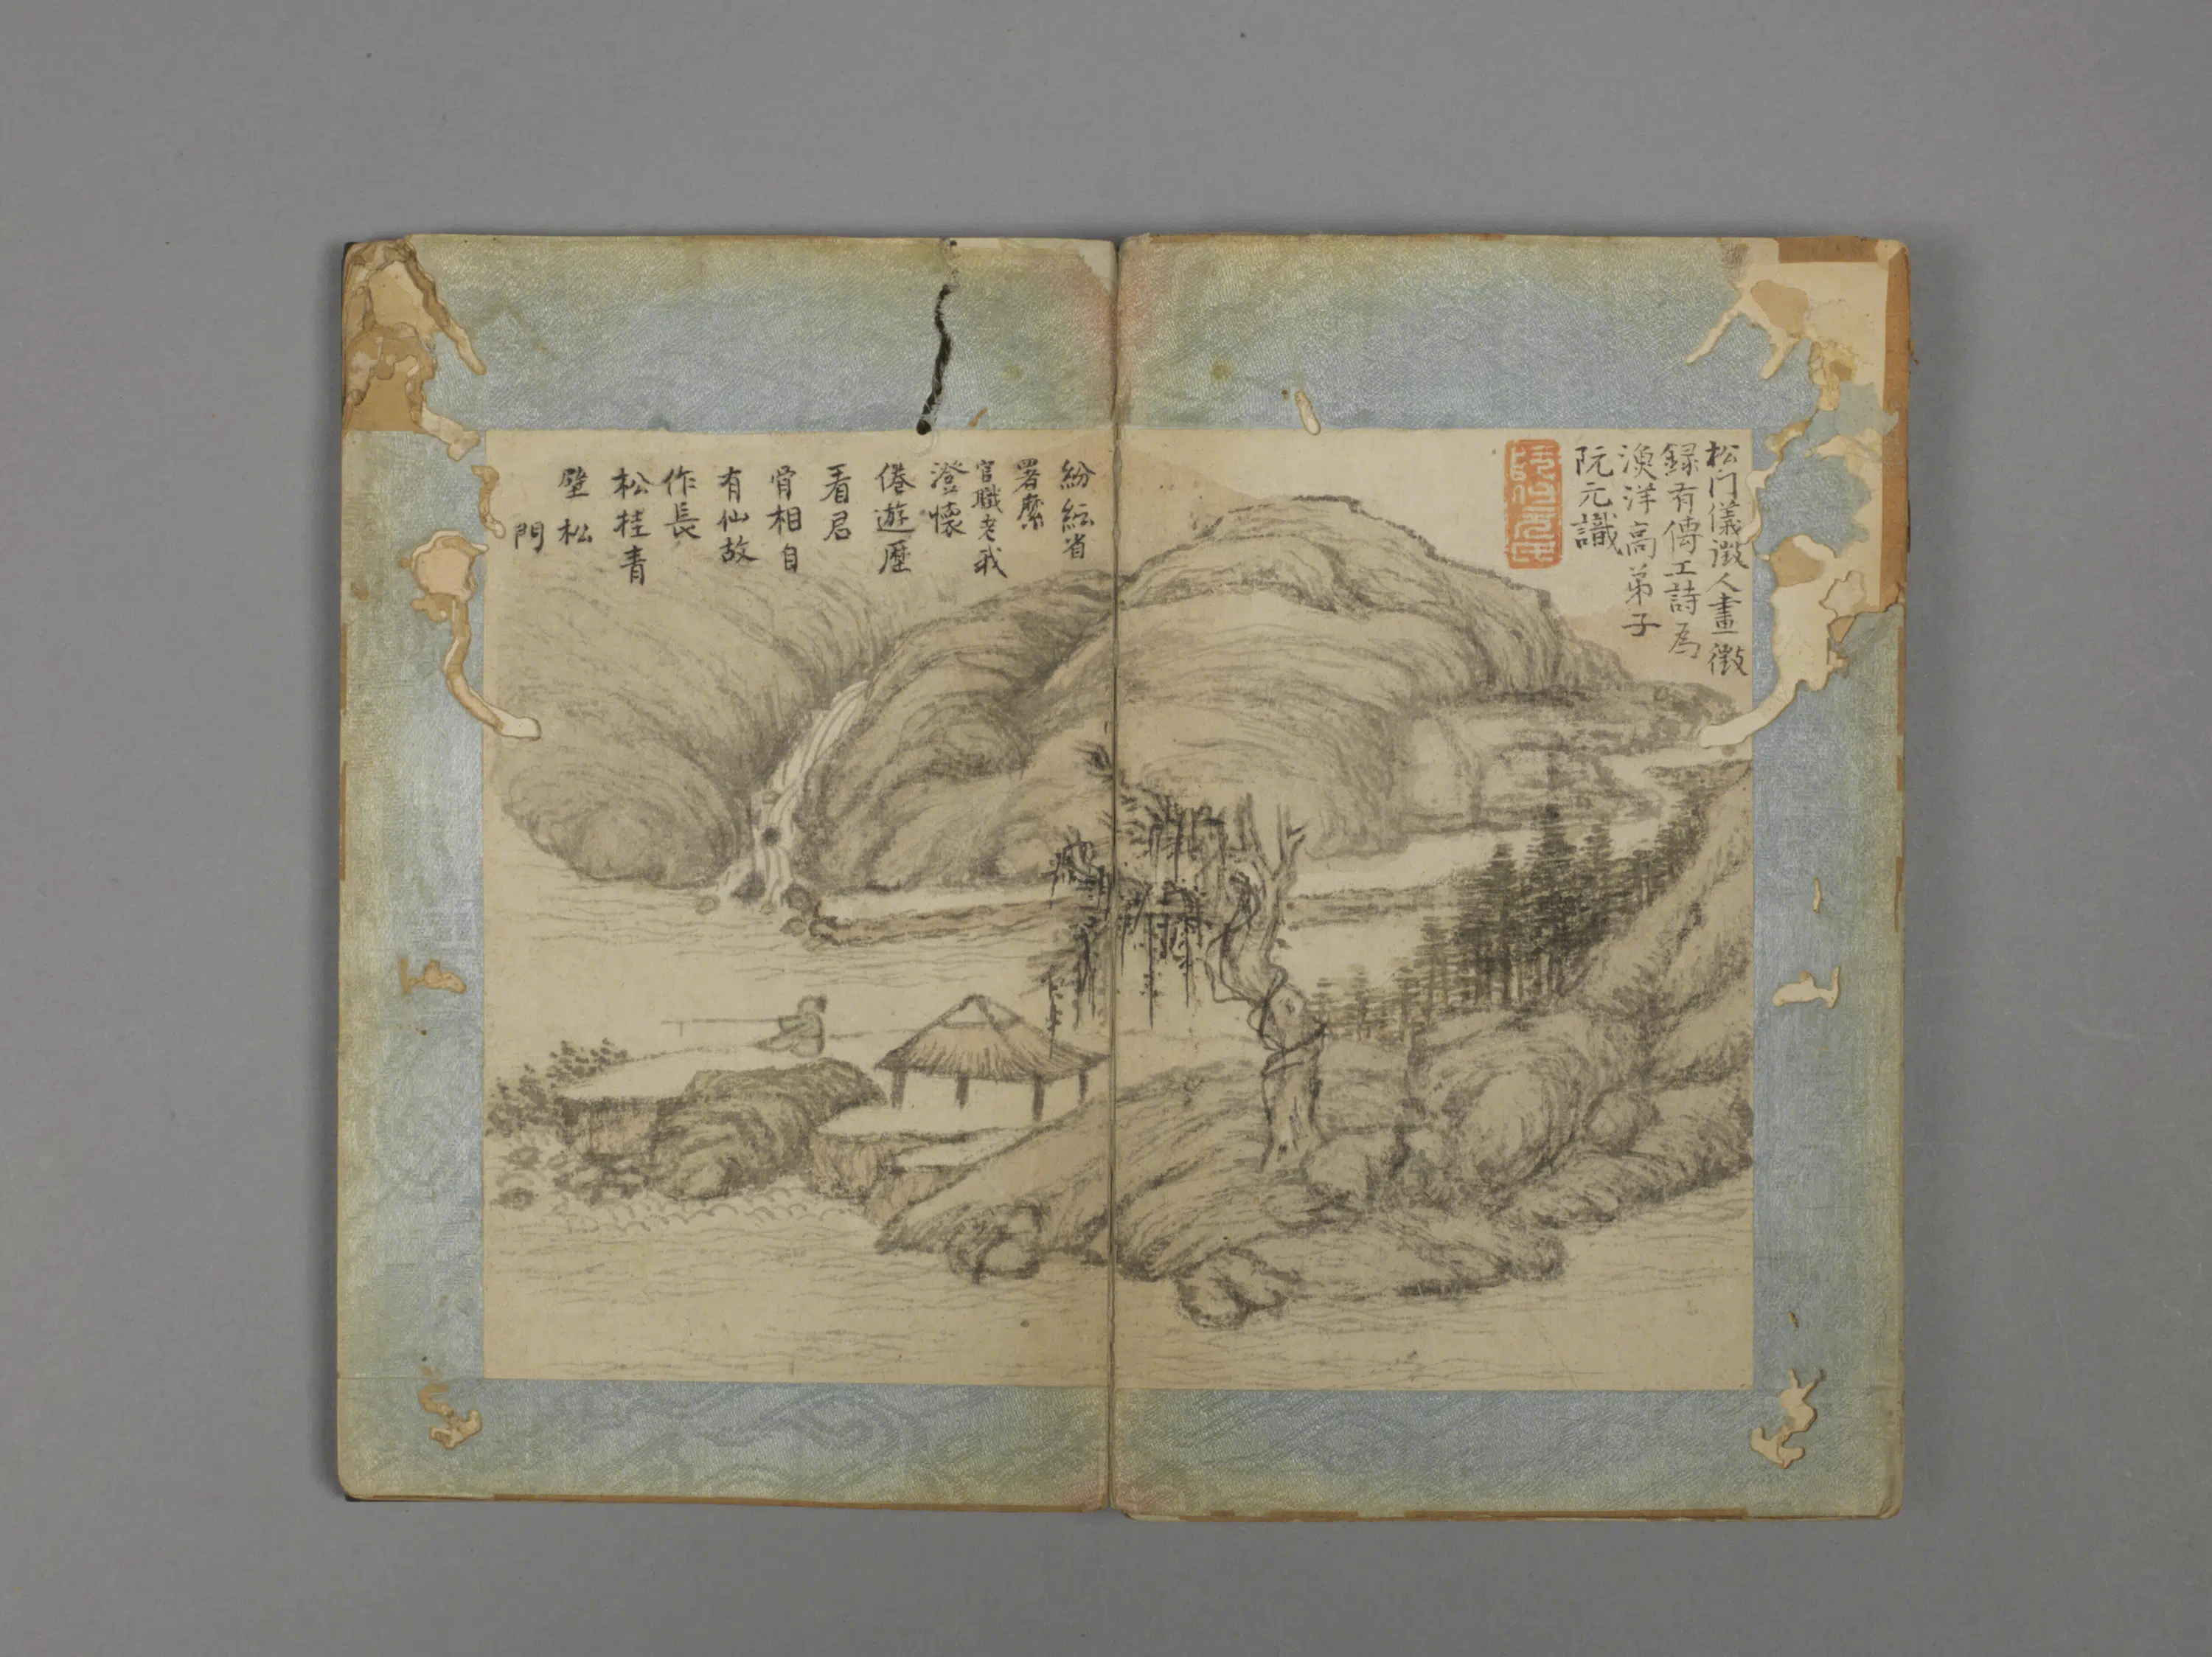 松门儀徵人畫徵
録有傳工詩為
漁洋高弟子
阮元識
阮伯元氏
紛紜省
署縻
官職老我
澄懷
倦遊歷
看君
骨相自
有仙故
作長
松挂青
壁 松
門